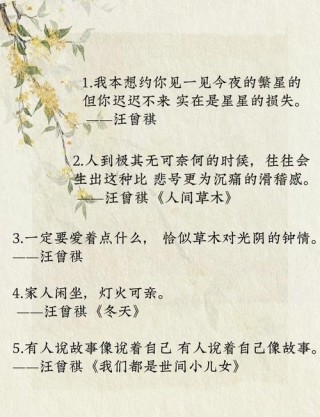 1.我本想约你见一见今夜的繁星的
但你迟迟不来 实在是星星的损失。
——汪曾祺
2.人到极其无可奈何的时候，往往会
生出这种比 悲号更为沉痛的滑稽感。
——汪曾祺《人间草木》
3.一定要爱着点什么， 恰似草木对光阴的钟情。
——汪曾祺
4.家人闲坐，灯火可亲。
——汪曾祺《冬天》
5.有人说故事像说着自己 有人说着自己像故事。
——汪曾祺《我们都是世间小儿女》